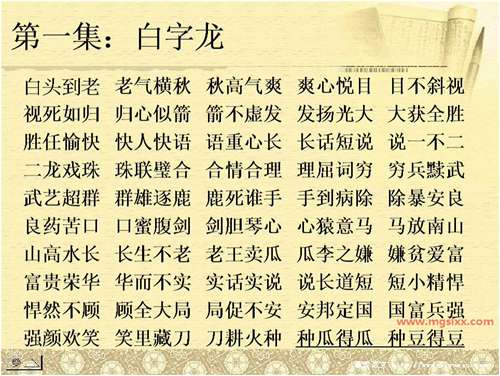 第一集：白字龙
白头到老 老气横秋 秋高气爽 爽心悦目 目不斜视
视死如归 归心似箭 箭不虚发 发扬光大 大获全胜
胜任愉快 快人快语 语重心长 长话短说 说一不二
二龙戏珠 珠联璧合 合情合理 理屈词穷 穷兵黩武
武艺超群 群雄逐鹿 鹿死谁手 手到病除 除暴安良
良药苦口 口蜜腹剑 剑胆琴心 心猿意马 马放南山
山高水长 长生不老 老王卖瓜 瓜李之嫌 嫌贫爱富
富贵荣华 华而不实 实话实说 说长道短 短小精悍
悍然不顾 顾全大局 局促不安 安邦定国 国富兵强
www.mgsixx.com
强颜欢笑 笑里藏刀 刀耕火种 种瓜得瓜 种豆得豆